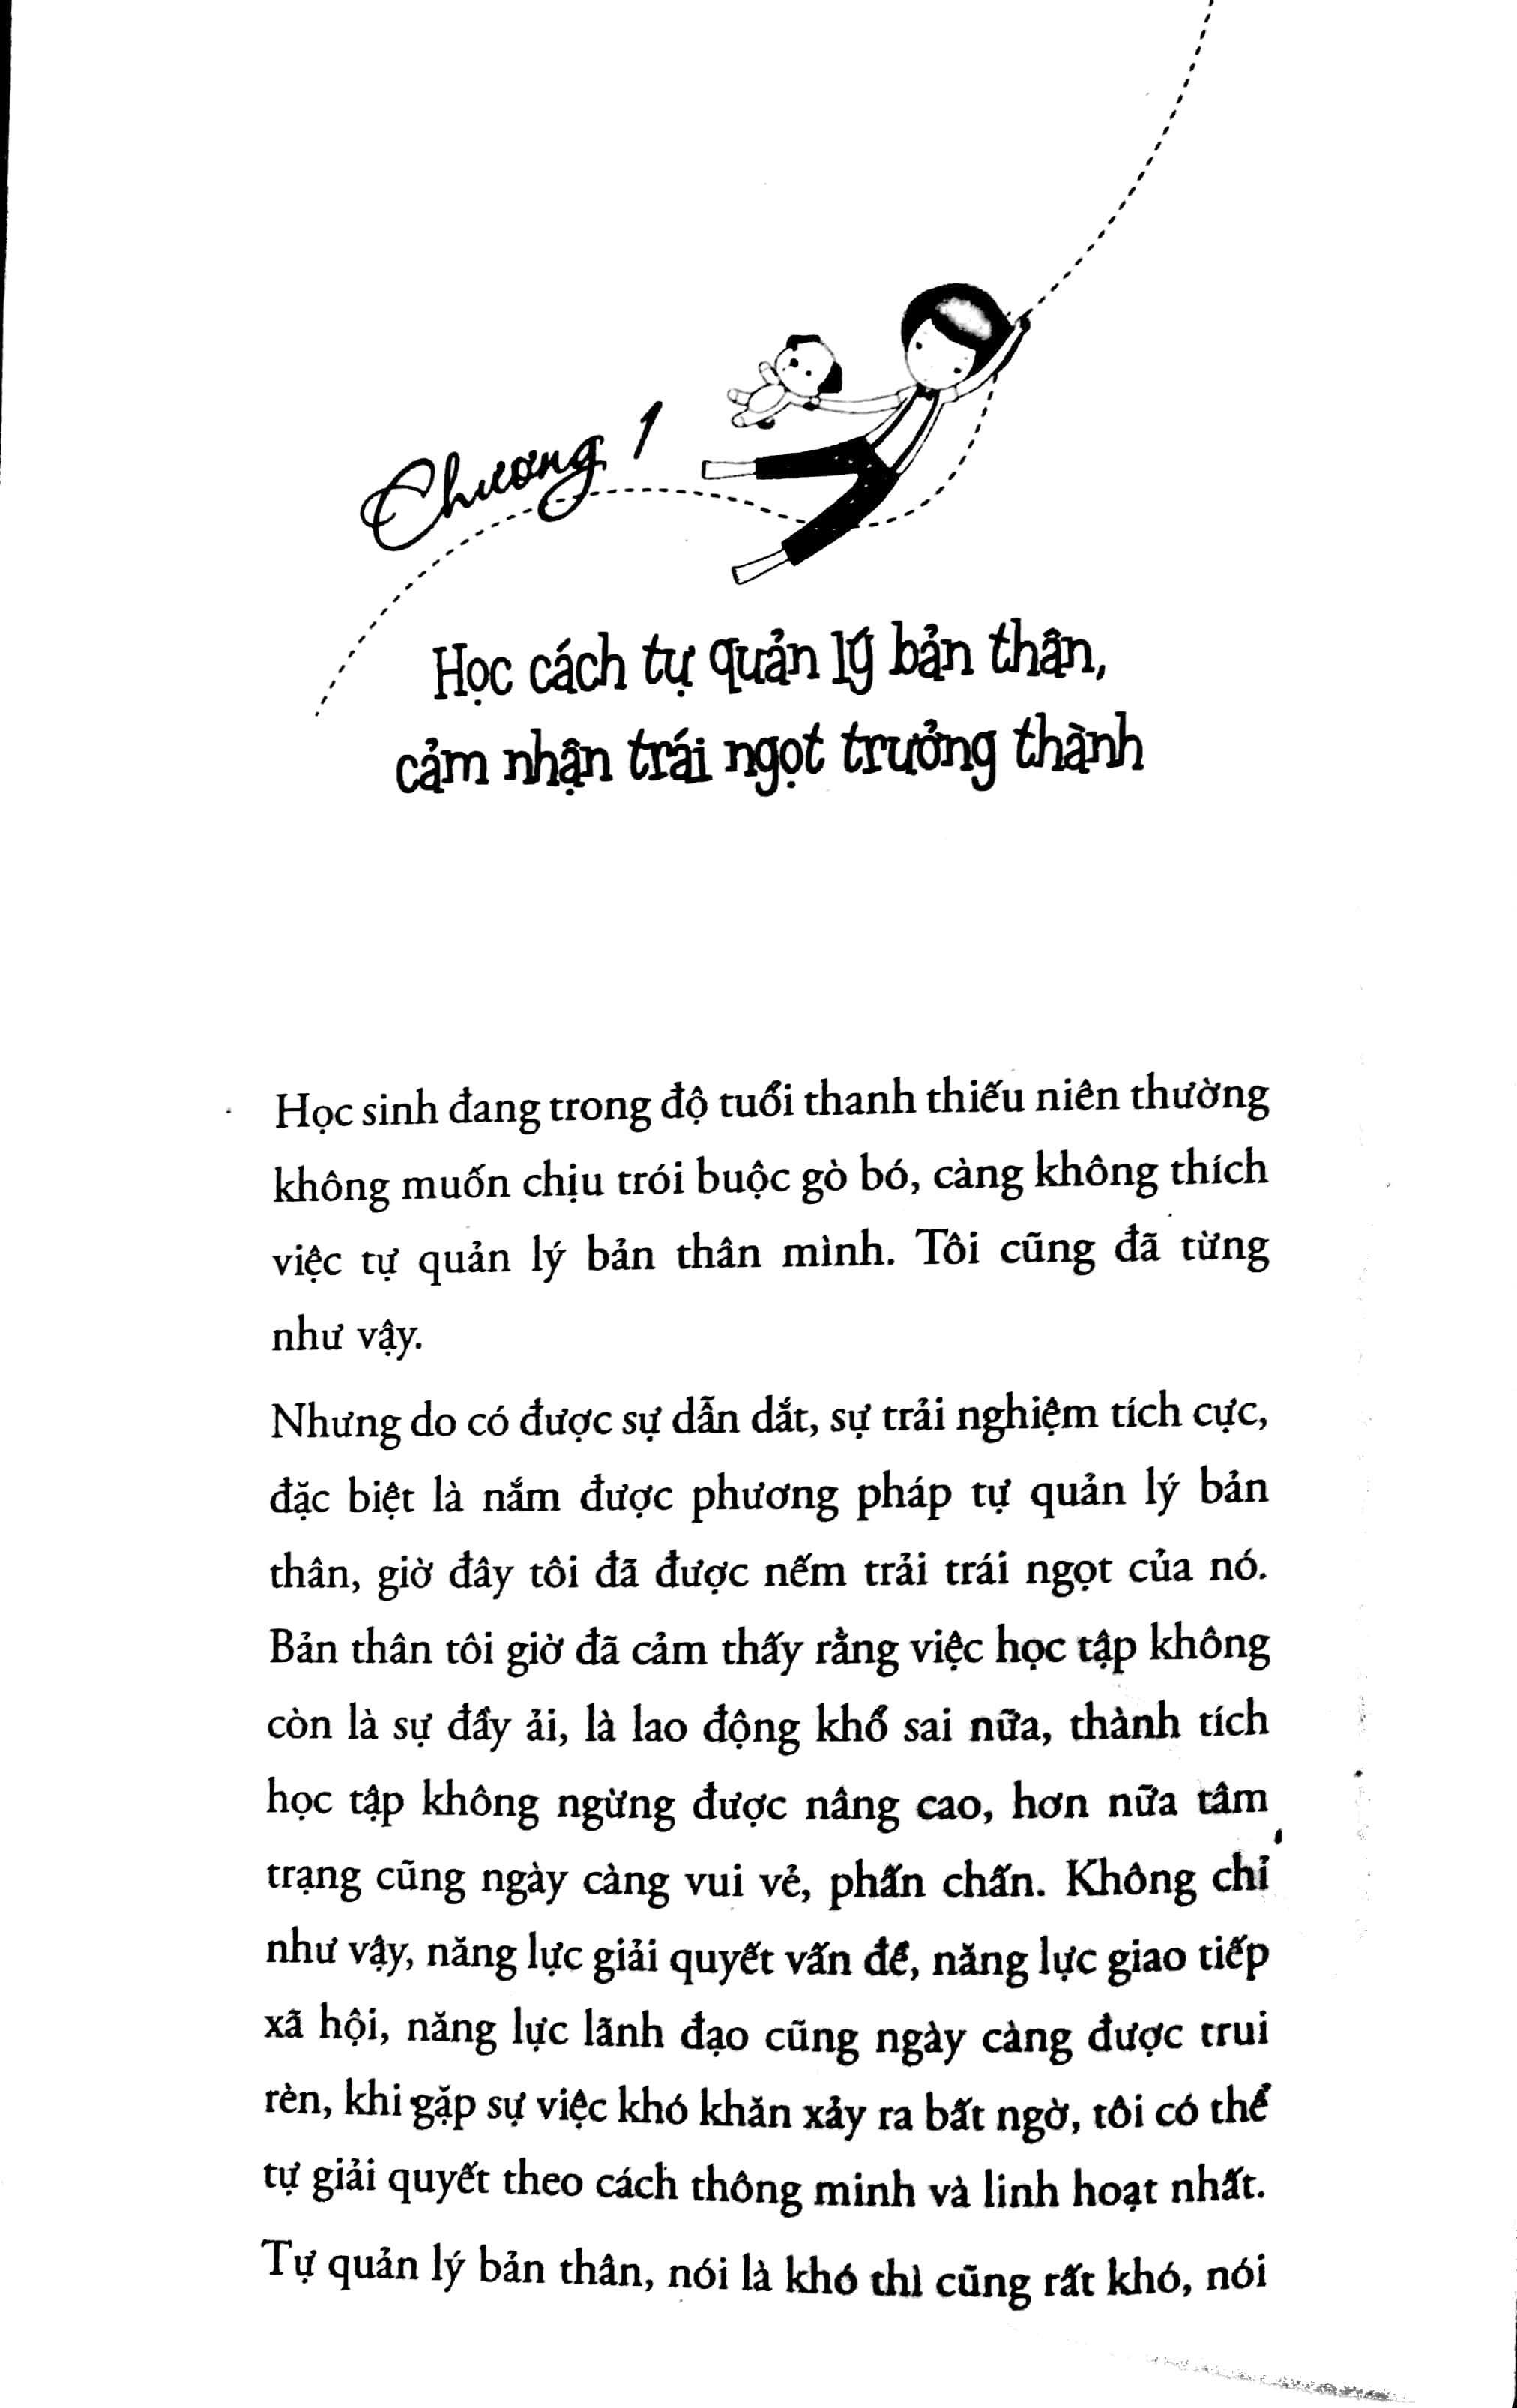 Chương 1
Học cách tự quản lý bản thân,
cảm nhận trái ngọt trưởng thành
Học sinh đang trong độ tuổi thanh thiếu niên thường
không muốn chịu trói buộc gò bó, càng không thích
việc tự quản lý bản thân mình. Tôi cũng đã từng
như vậy.
Nhưng do có được sự dẫn dắt, sự trải nghiệm tích cực,
đặc biệt là nắm được phương pháp tự quản lý bản
thân, giờ đây tôi đã được nếm trải trái ngọt của nó.
Bản thân tôi giờ đã cảm thấy rằng việc học tập không
còn là sự đầy ải, là lao động khổ sai nữa, thành tích
học tập không ngừng được nâng cao, hơn nữa tâm
trạng cũng ngày càng vui vẻ, phấn chấn. Không chỉ
như vậy, năng lực giải quyết vấn đề, năng lực giao tiếp
xã hội, năng lực lãnh đạo cũng ngày càng được trui
rèn, khi gặp sự việc khó khăn xảy ra bất ngờ, tôi có thể
tự giải quyết theo cách thông minh và linh hoạt nhất.
Tự quản lý bản thân, nói là khó thì cũng rất khó, nói